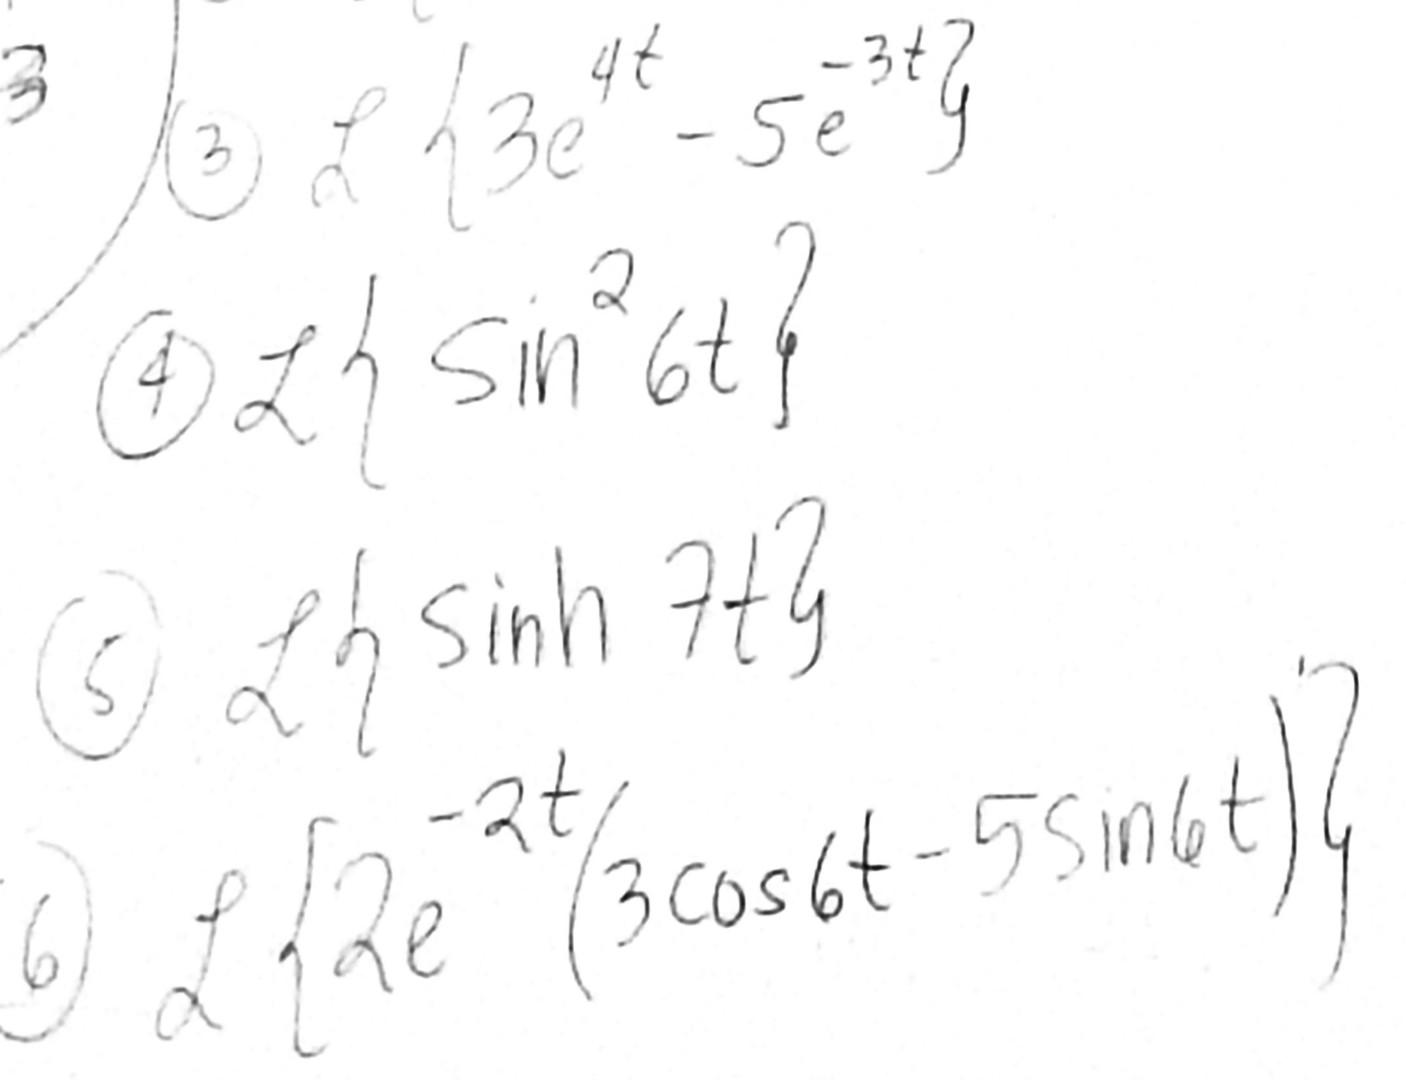 3
③ ℒ{3e^{4t} - 5e^{-3t}}
④ ℒ{sin² 6t}
⑤ ℒ{sinh 7t}
⑥ ℒ{2e^{-2t}(3cos6t - 5sin6t)}